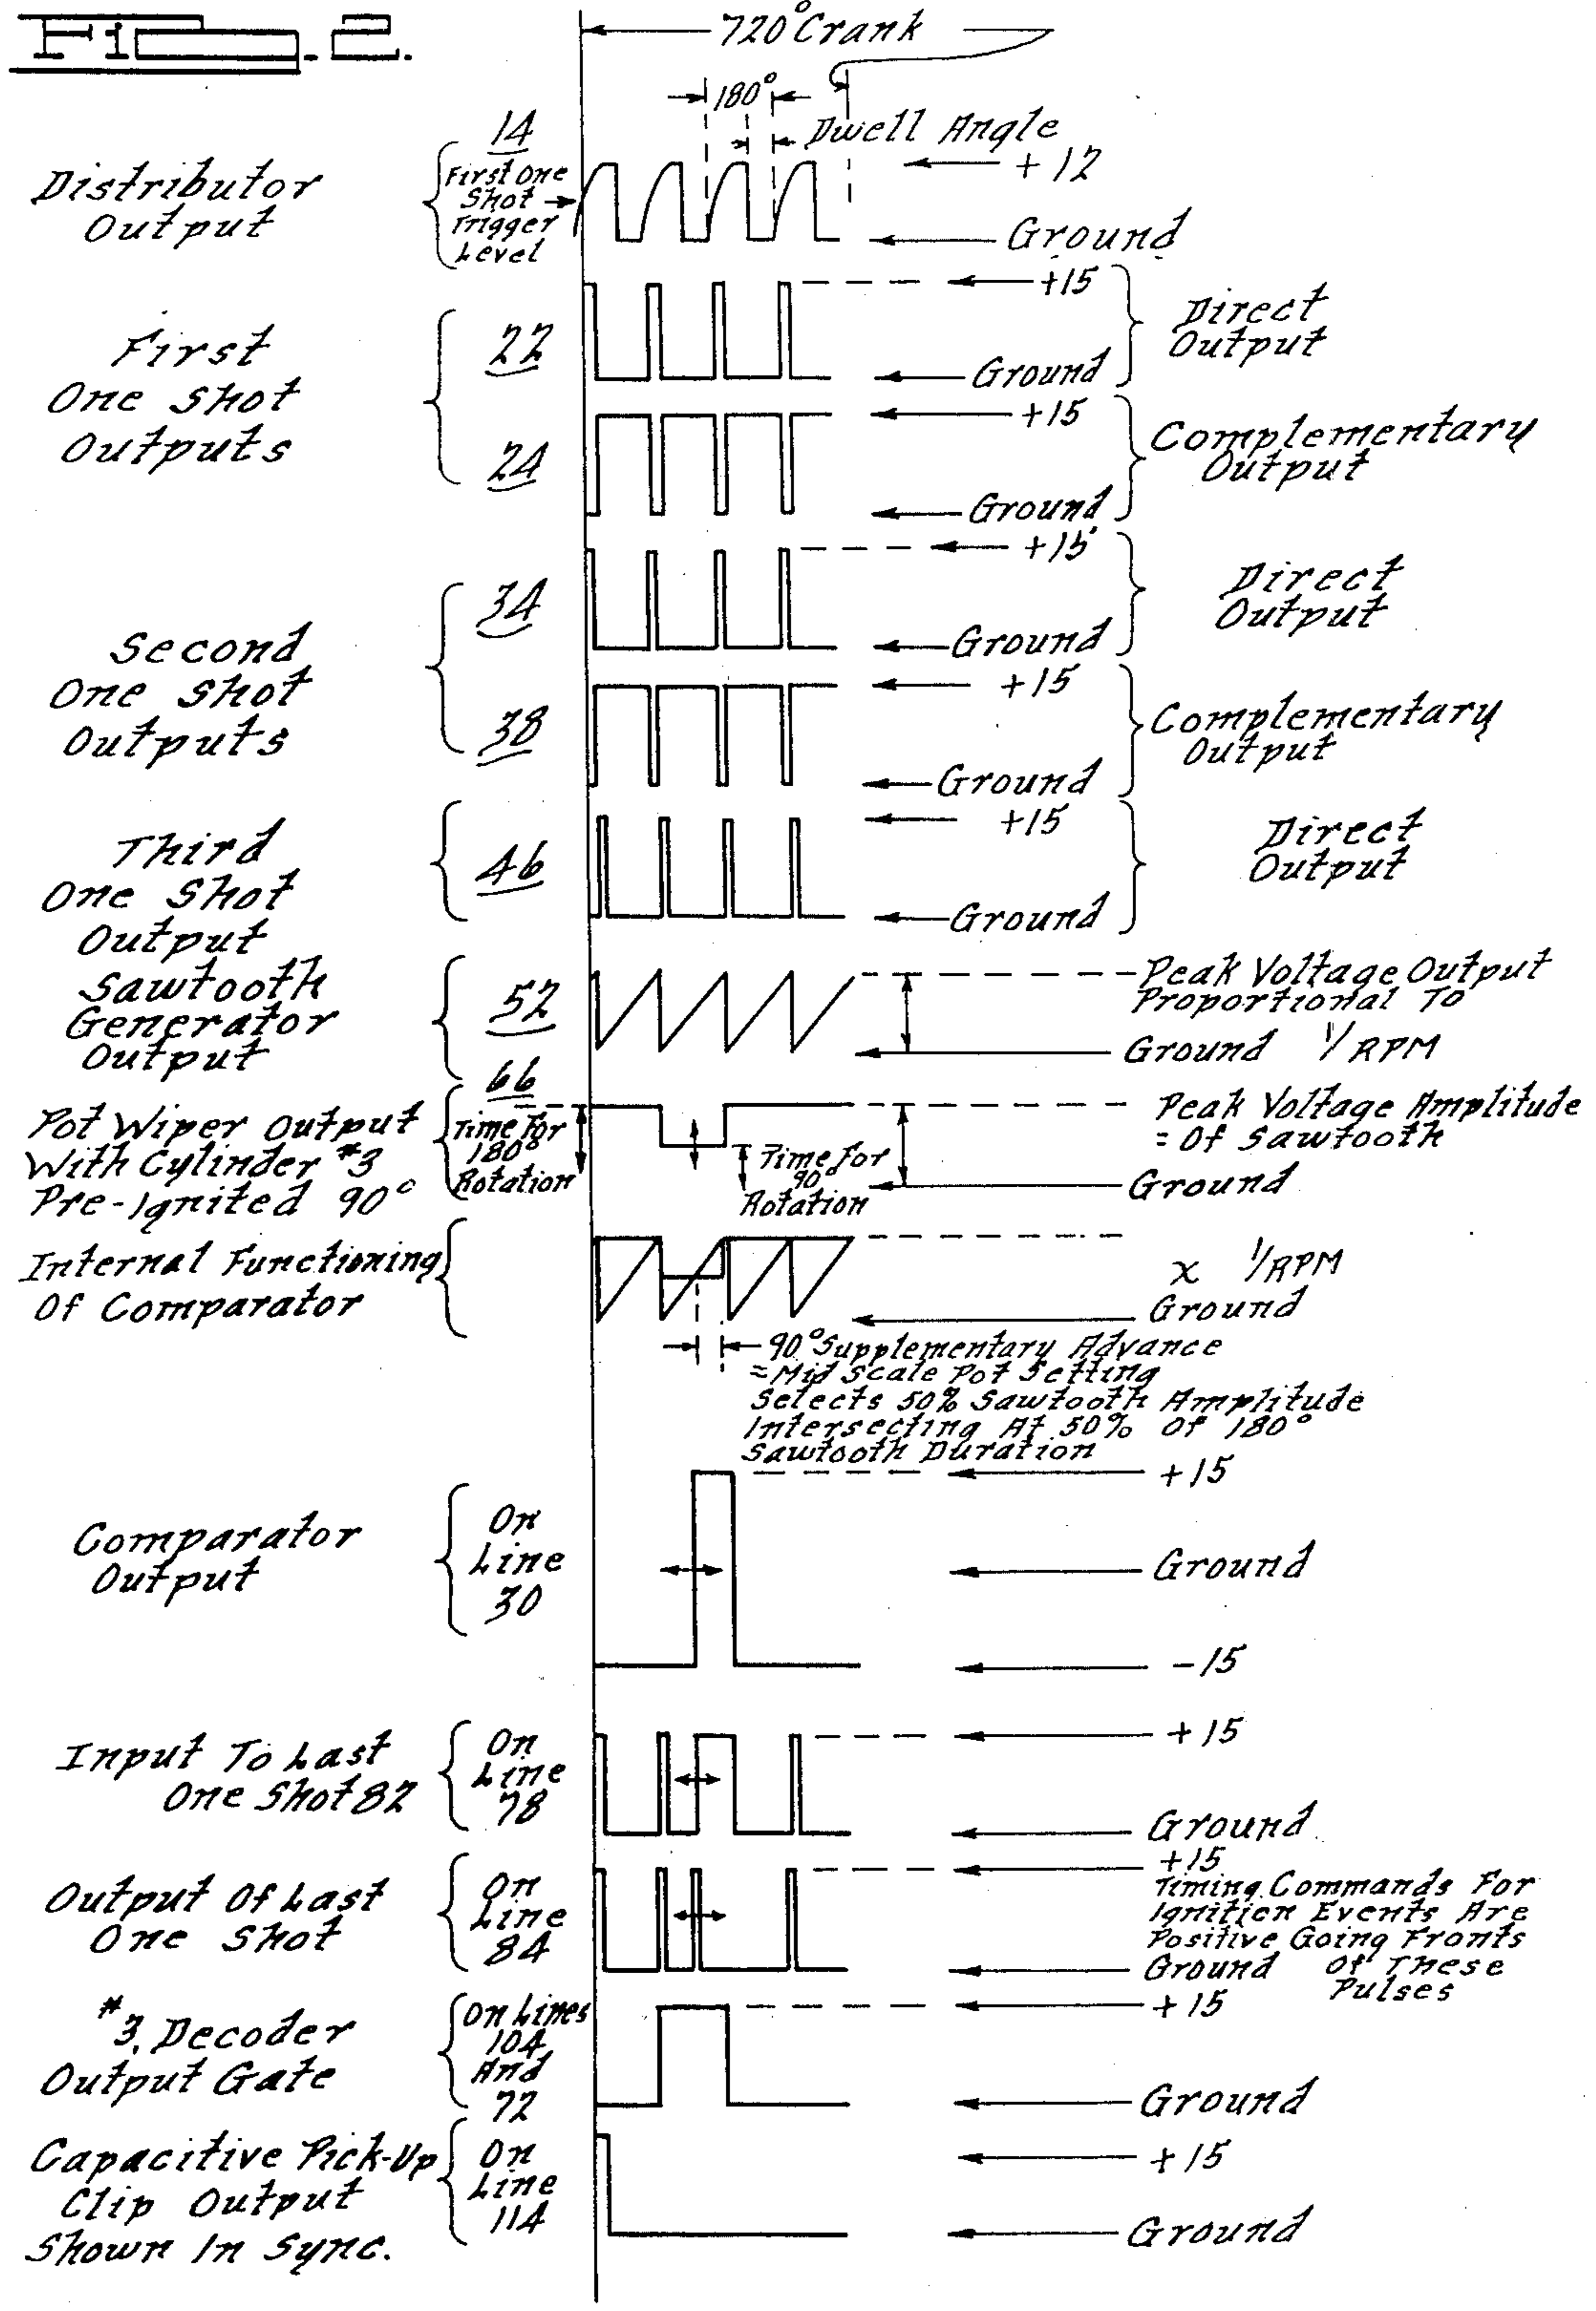 FIG. 2.
720° Crank
180°
Dwell Angle
Distributor
Output
14
First One
Shot
Trigger
Level
+12
Ground
First
One Shot
Outputs
22
+15
Ground
Direct
Output
24
+15
Ground
Complementary
Output
Second
One Shot
Outputs
34
+15
Ground
Direct
Output
38
+15
Ground
Complementary
Output
Third
One Shot
Output
46
+15
Ground
Direct
Output
Sawtooth
Generator
Output
52
Peak Voltage Output
Proportional To
Ground 1/RPM
Pot Wiper Output
With Cylinder #3
Pre-Ignited 90°
66
Time For
180°
Rotation
Time For
90°
Rotation
Peak Voltage Amplitude
= Of Sawtooth
Ground
Internal Functioning
Of Comparator
x 1/RPM
Ground
90° Supplementary Advance
= Mid Scale Pot Setting
Selects 50% Sawtooth Amplitude
Intersecting At 50% Of 180°
Sawtooth Duration
Comparator
Output
On
Line
30
+15
Ground
-15
Input To Last
One Shot 82
On
Line
78
+15
Ground
Output Of Last
One Shot
On
Line
84
+15
Timing Commands For
Ignition Events Are
Positive Going Fronts
Ground Of These
Pulses
#3, Decoder
Output Gate
On Lines
104
And
72
+15
Ground
Capacitive Pick-Up
Clip Output
Shown In Sync.
On
Line
114
+15
Ground